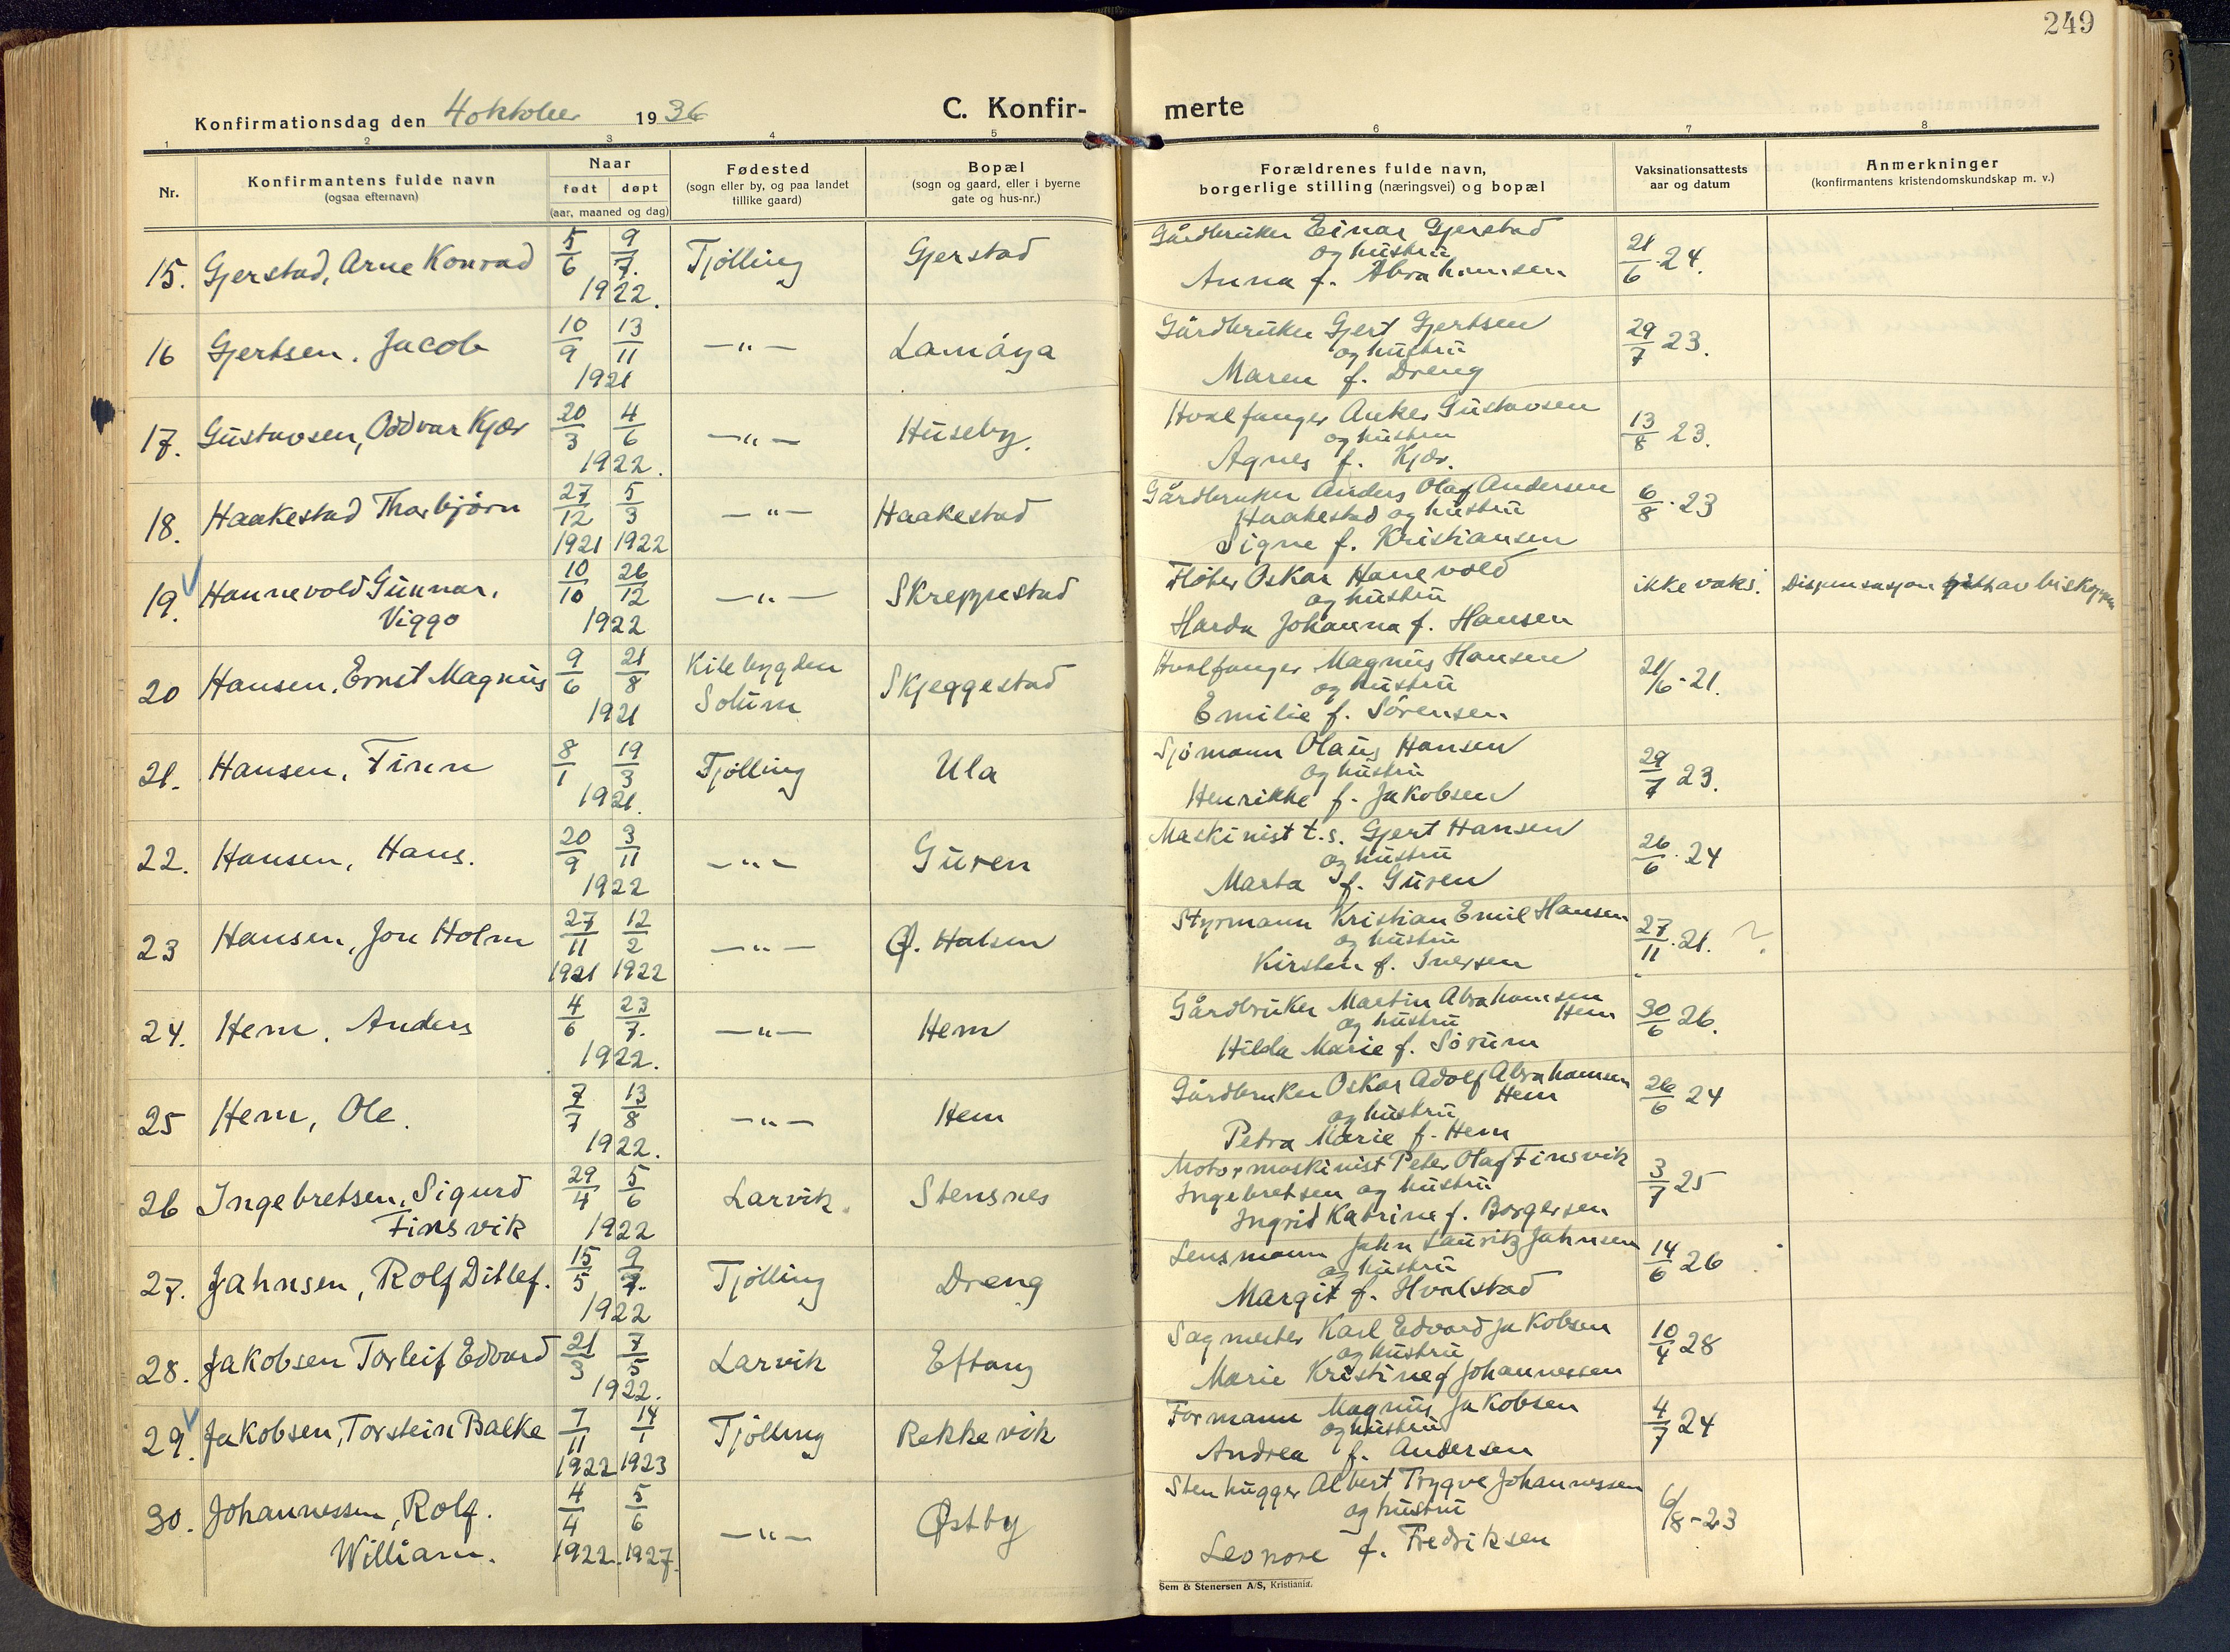 249
Konfirmationsdag den 4 oktober 1936
C. Konfir-
merte
1 2 3 4 5 6 7 8
Nr.
Konfirmantens fulde navn
(ogsaa efternavn)
Naar
født døpt
(aar, maaned og dag)
Fødested
(sogn eller by, og paa landet
tillike gaard)
Bopæl
(sogn og gaard, eller i byerne
gate og hus-nr.)
Forældrenes fulde navn,
borgerlige stilling (næringsvei) og bopæl
Vaksinationsattests
aar og datum
Anmerkninger
(konfirmantens kristendomskundskap m. v.)
15. Gjerstad, Arne Konrad 5/6 9/7. 1922. Tjølling Gjerstad
Gårdbruker Einar Gjerstad
og hustru
Anna f. Abrahamsen
21/6 24.
16 Gjertsen. Jacob 10/9 13/11 1921 —"— Lamøya
Gårdbruker Gjert Gjertsen
og hustru
Maren f. Dreng
29/7 23.
17. Gustavsen, Oddvar Kjær 20/3 4/6 1922. —"— Huseby.
Hvalfanger Anker Gustavsen
og hustru
Agnes f. Kjær.
13/8 23.
18. Haakestad Thorbjørn 27/12 1921 5/3 1922 —"— Haakestad
Gårdbruker Anders Olaf Andersen
Haakestad og hustru
Signe f. Kristiansen
6/8. 23
19. Hannevold Gunnar,
Viggo 10/10 26/12 1922 —"— Skreppestad
Fløter Oskar Hanevold
og hustru
Harda Johanna f. Hansen
ikke vaks. Dispensasjon av biskopen
20 Hansen, Ernst Magnus 9/6 21/8 1921 Kilebygden
Solum Skjeggestad
Hvalfanger Magnus Hansen
og hustru
Emilie f. Sørensen
21/6-21.
21. Hansen, Finn 8/1 19/3 1921. Tjølling Ula
Sjømann Olaus Hansen
og hustru
Henrikke f. Jakobsen
29/7 23.
22. Hansen, Hans. 20/9 3/11 1922 —"— Guren
Maskinist t.s. Gjert Hansen
og hustru
Marta f. Guren
26/6. 24
23 Hansen, Jon Holm 27/11 1921 12/2 1922 —"— Ø. Halsen
Styrmann Kristian Emil Hansen
og hustru
Kirsten f. Iversen
27/11. 21. ?
24. Hem, Anders 4/6 23/7. 1922. —"— Hem
Gårdbruker Martin Abrahamsen
Hem
og hustru
Hilda Marie f. Sørum
30/6 26.
25 Hem, Ole. 7/7 13/8 1922. —"— Hem
Gårdbruker Oskar Adolf Abrahamsen
Hem
og hustru
Petra Marie f. Hem
26/6 24
26 Ingebretsen, Sigurd
Finsvik 29/4 5/6 1922 Larvik. Stensnes
Motormaskinist Peter Olaf Finsvik
Ingebretsen og hustru
Ingrid Katrine f. Borgersen
3/7 25
27. Jahnsen, Rolf Ditlef. 15/5 9/7. 1922 Tjølling Dreng
Lensmann Jahn Lauritz Jahnsen
og hustru
Margit f. Hvalstad
14/6 26
28. Jakobsen Torleif Edvard 21/3 7/5 1922. Larvik Eftang
Sagmester Karl Edvard Jakobsen
og hustru
Marie Kristine f Johannessen
10/4 28
29. Jakobsen, Torstein Balke 7/11 1922 14/1 1923 Tjølling Rekkevik
Formann Magnus Jakobsen
og hustru
Andrea f. Andersen
4/7 24
30. Johannessen, Rolf.
William. 4/4 1922. 5/6 1927. —"— Østby
Stenhugger Albert Trygve Johannessen
og hustru
Leonore f. Fredriksen
6/8-23
Sem & Stenersen A/S, Kristiania.